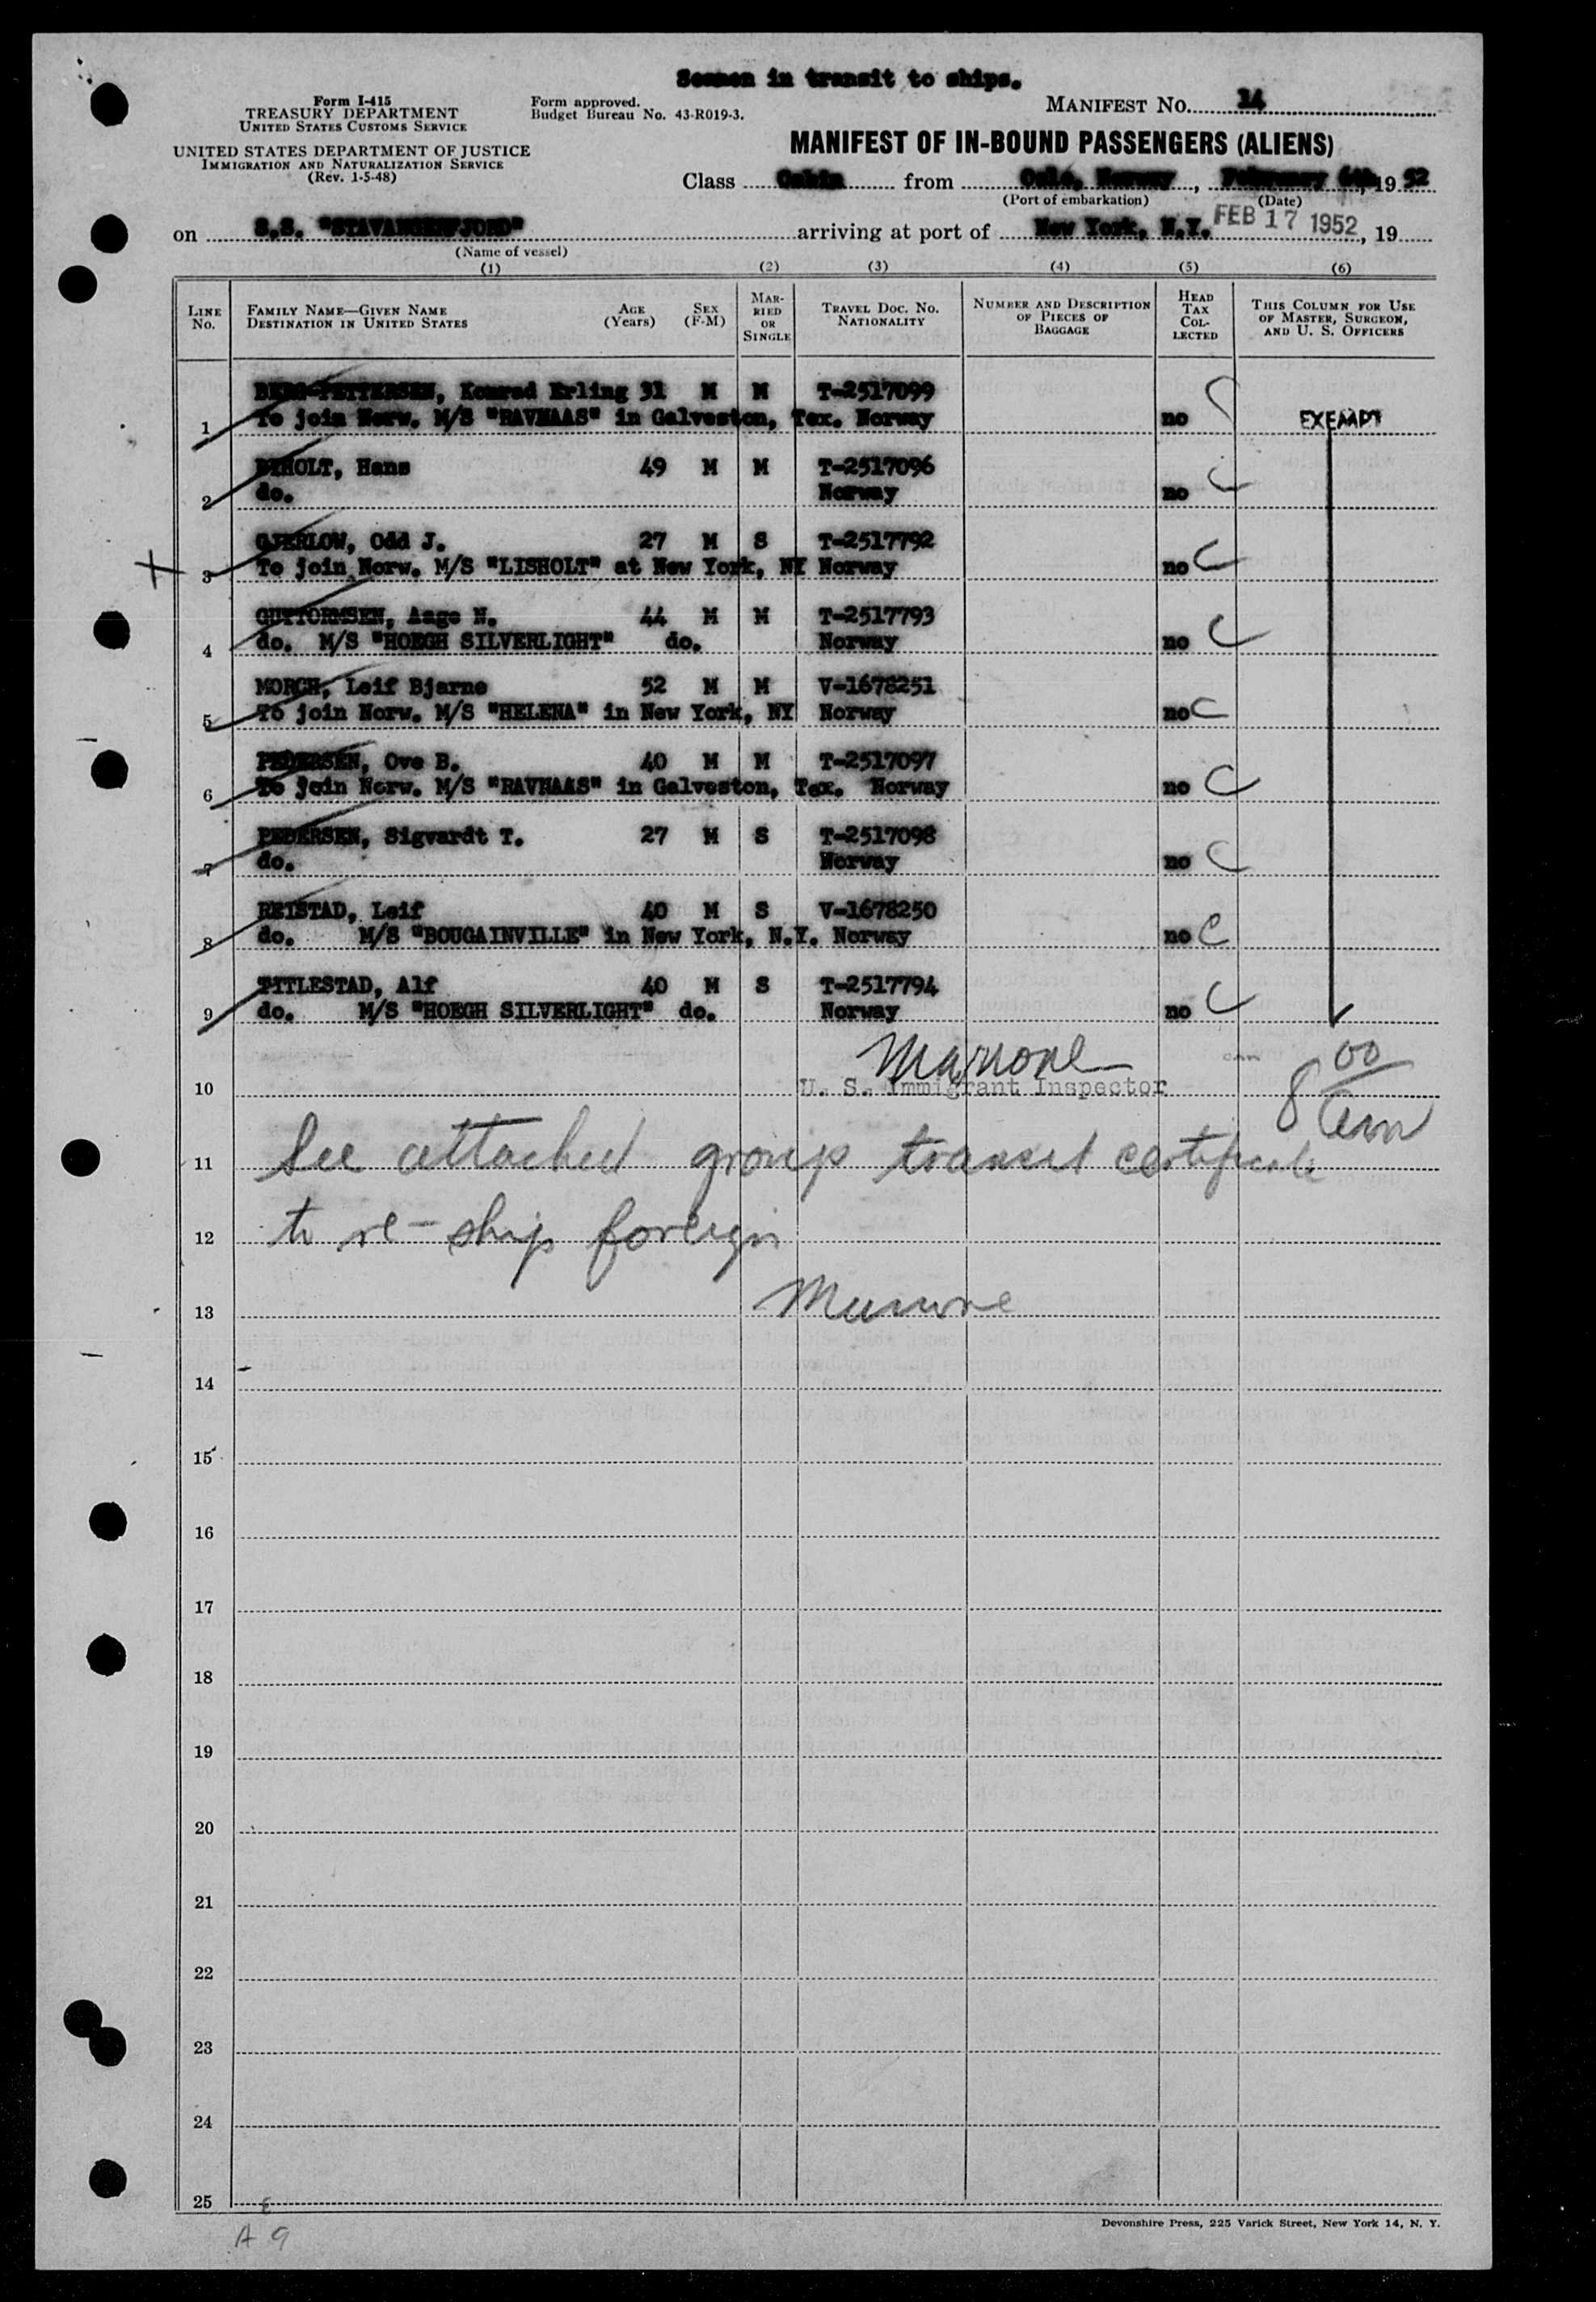 Seamen in transit to ships.
Form I-415
TREASURY DEPARTMENT
UNITED STATES CUSTOMS SERVICE
Form approved.
Budget Bureau No. 43-R019-3.
MANIFEST NO. 14
UNITED STATES DEPARTMENT OF JUSTICE
IMMIGRATION AND NATURALIZATION SERVICE
(Rev. 1-5-48)
MANIFEST OF IN-BOUND PASSENGERS (ALIENS)
Class Cabin from Oslo, Norway, February 6th, 19 52
(Port of embarkation) (Date)
on S.S. "STAVANGERFJORD" arriving at port of New York, N.Y. FEB 17 1952, 19
(Name of vessel)
(1) (2) (3) (4) (5) (6)
LINE NO.
FAMILY NAME—GIVEN NAME
DESTINATION IN UNITED STATES
AGE (Years)
SEX (F-M)
MARRIED OR SINGLE
TRAVEL DOC. NO. NATIONALITY
NUMBER AND DESCRIPTION OF PIECES OF BAGGAGE
HEAD TAX COLLECTED
THIS COLUMN FOR USE OF MASTER, SURGEON, AND U. S. OFFICERS
BERG-PETTERSEN, Konrad Erling 31 M M T-2517099
1 To join Norw. M/S "RAVNAAS" in Galveston, Tex. Norway no EXEMPT
HOLT, Hans 49 M M T-2517096
2 do. Norway no C
GJERLOW, Odd J. 27 M S T-2517792
X 3 To join Norw. M/S "LISHOLT" at New York, NY Norway no C
GUTTORMSEN, Aage N. 44 M M T-2517793
4 do. M/S "HOEGH SILVERLIGHT" do. Norway no C
MORCH, Leif Bjarne 52 M M V-1678251
5 To join Norw. M/S "HELENA" in New York, NY Norway no C
PEDERSEN, Ove B. 40 M M T-2517097
6 To join Norw. M/S "RAVNAAS" in Galveston, Tex. Norway no C
PEDERSEN, Sigvardt T. 27 M S T-2517098
7 do. Norway no C
REISTAD, Leif 40 M S V-1678250
8 do. M/S "BOUGAINVILLE" in New York, N.Y. Norway no C
TITLESTAD, Alf 40 M S T-2517794
9 do. M/S "HOEGH SILVERLIGHT" do. Norway no C
10 U. S. Immigrant Inspector 8 00
11 See attached group transit certificate
12 to re-ship foreign
13
14
15
16
17
18
19
20
21
22
23
24
25
A 9
Devonshire Press, 225 Varick Street, New York 14, N. Y.